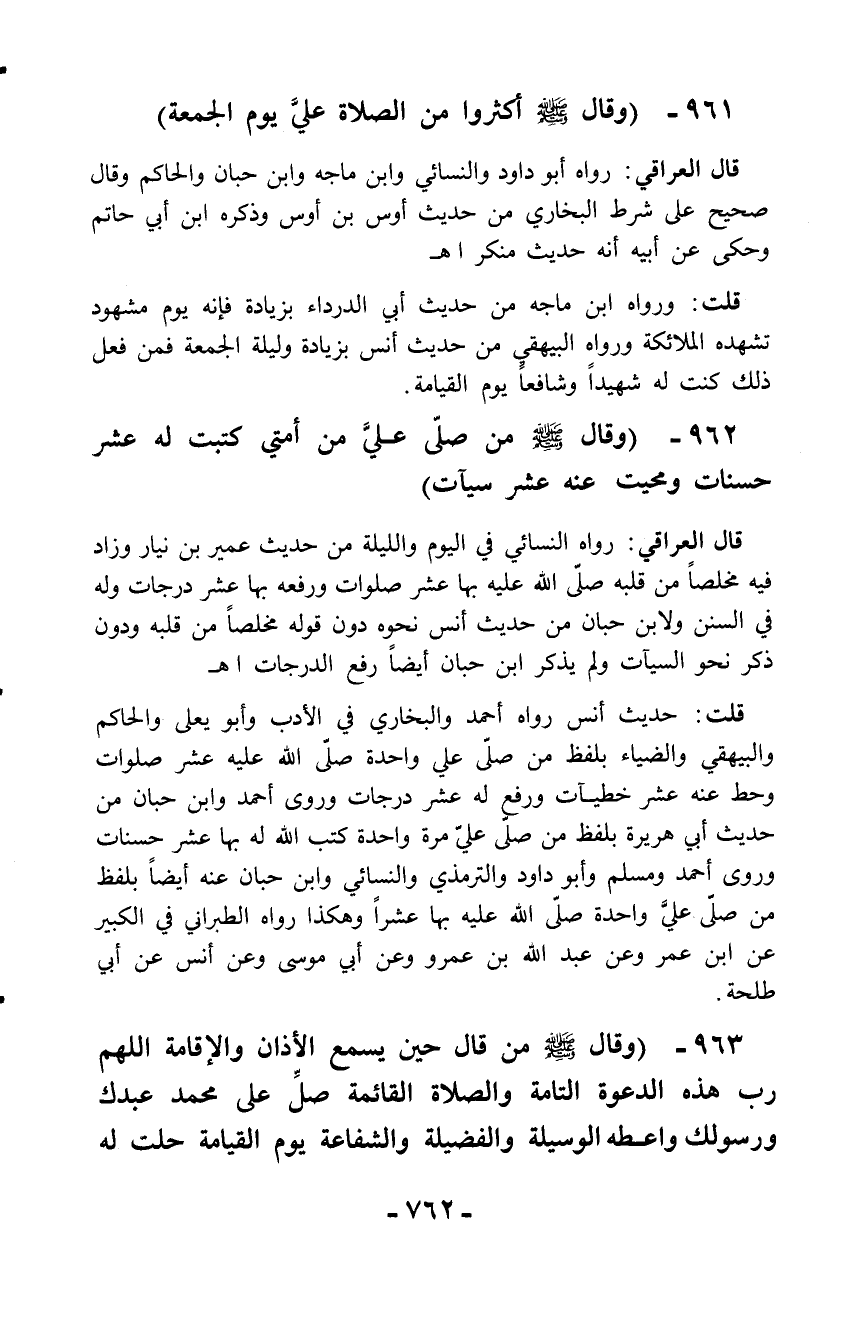 ٩٦١ - (وقال ﷺ أكثروا من الصلاة عليَّ يوم الجمعة)
قال العراقي: رواه أبو داود والنسائي وابن ماجه وابن حبان والحاكم وقال
صحيح على شرط البخاري من حديث أوس بن أوس وذكره ابن أبي حاتم
وحكى عن أبيه أنه حديث منكر ا هـ
قلت: ورواه ابن ماجه من حديث أبي الدرداء بزيادة فإنه يوم مشهود
تشهده الملائكة ورواه البيهقي من حديث أنس بزيادة وليلة الجمعة فمن فعل
ذلك كنت له شهيداً وشافعاً يوم القيامة.
٩٦٢ - (وقال ﷺ من صلّى عليَّ من أمتي كتبت له عشر
حسنات ومحيت عنه عشر سيآت)
قال العراقي: رواه النسائي في اليوم والليلة من حديث عمير بن نيار وزاد
فيه مخلصاً من قلبه صلّى الله عليه بها عشر صلوات ورفعه بها عشر درجات وله
في السنن ولابن حبان من حديث أنس نحوه دون قوله مخلصاً من قلبه ودون
ذكر نحو السيآت ولم يذكر ابن حبان أيضاً رفع الدرجات ا هـ
قلت: حديث أنس رواه أحمد والبخاري في الأدب وأبو يعلى والحاكم
والبيهقي والضياء بلفظ من صلّى علي واحدة صلّى الله عليه عشر صلوات
وحط عنه عشر خطيآت ورفع له عشر درجات وروى أحمد وابن حبان من
حديث أبي هريرة بلفظ من صلّى عليّ مرة واحدة كتب الله له بها عشر حسنات
وروى أحمد ومسلم وأبو داود والترمذي والنسائي وابن حبان عنه أيضاً بلفظ
من صلّى عليَّ واحدة صلّى الله عليه بها عشراً وهكذا رواه الطبراني في الكبير
عن ابن عمر وعن عبد الله بن عمرو وعن أبي موسى وعن أنس عن أبي
طلحة.
٩٦٣ - (وقال ﷺ من قال حين يسمع الأذان والإقامة اللهم
رب هذه الدعوة التامة والصلاة القائمة صلِّ على محمد عبدك
ورسولك واعطه الوسيلة والفضيلة والشفاعة يوم القيامة حلت له
- ٧٦٢ -